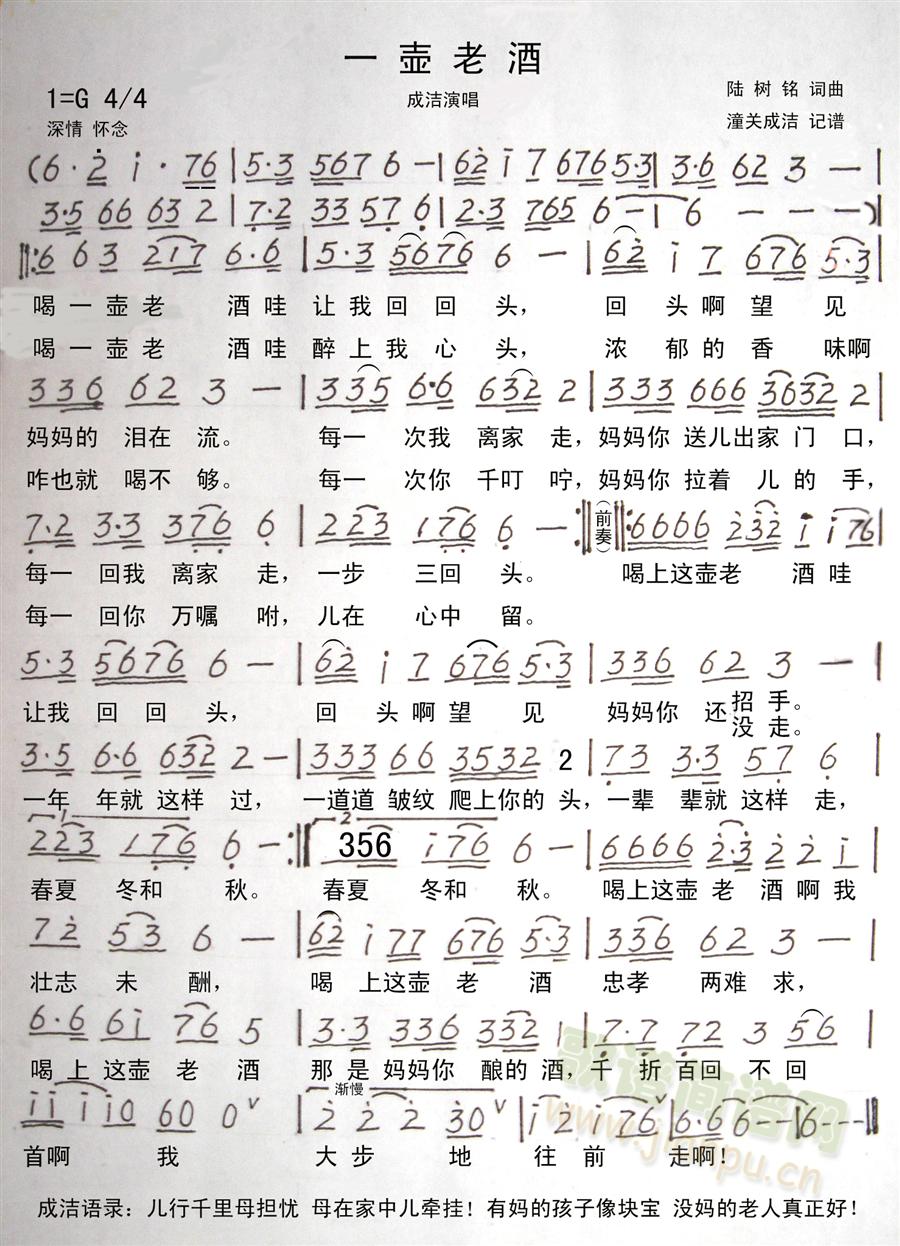 一壶老酒
1=G 4/4
成洁演唱
陆树铭 词曲
深情 怀念
潼关成洁 记谱
(6·2 i·76|5·3 5676 6—|62 i7 676 5·3|3·6 62 3 —|
3·5 66 63 2|7·2 33 57 6|2·3 765 6—|6 — — —)|
‖:6 63 217 6·6|5·3 5676 6 —|62 i7 676 5·3|
喝一壶老 酒哇 让我回回头， 回头啊望见
喝一壶老 酒哇 醉上我心头， 浓郁的香 味啊
336 62 3 —|335 6·6 632 2|333 666 3632 2|
妈妈的 泪在流。 每一 次我 离家 走，妈妈你 送儿出家 门口，
咋也就 喝不够。 每一 次你 千叮 咛，妈妈你 拉着 儿的手，
7·2 3·3 376 6|223 176 6 —:‖(前奏)‖:6666 232 i i76|
每一 回我 离家 走，一步 三回头。 喝上这壶老 酒哇
每一 回你 万嘱 咐，儿在 心中留。
5·3 5676 6 —|62 i7 676 5·3|336 62 3 —|
让我 回回头， 回头啊望见 妈妈你 还招手。
没走。
3·5 6·6 632 2—|333 66 3532 2|73 3·3 57 6|
一年 年就 这样 过， 一道道 皱纹 爬上你的 头，一辈 辈就 这样 走，
1
2
223 176 6 —:‖356 i76 6 —|6666 2·3 2·2 i|
春夏 冬和 秋。 春夏 冬和 秋。 喝上这壶 老 酒啊我
72 53 6 —|62 i77 676 5·3|336 62 3 —|
壮志 未酬， 喝 上这壶 老 酒 忠孝 两难求，
6·6 6i 76 5|3·3 336 332 1|7·7 72 3 56|
喝上 这壶 老酒 那是 妈妈你 酿的 酒，千折百回 不回
渐慢
ii ii0 60 0∨|2 2·2 30∨|i2 i76∨|6·6 6——|6———‖
首啊 我 大步 地 往前 走啊！
歌谱简谱网
www.jianpu.cn
成洁语录：儿行千里母担忧 母在家中儿牵挂！有妈的孩子像块宝 没妈的老人真正好！